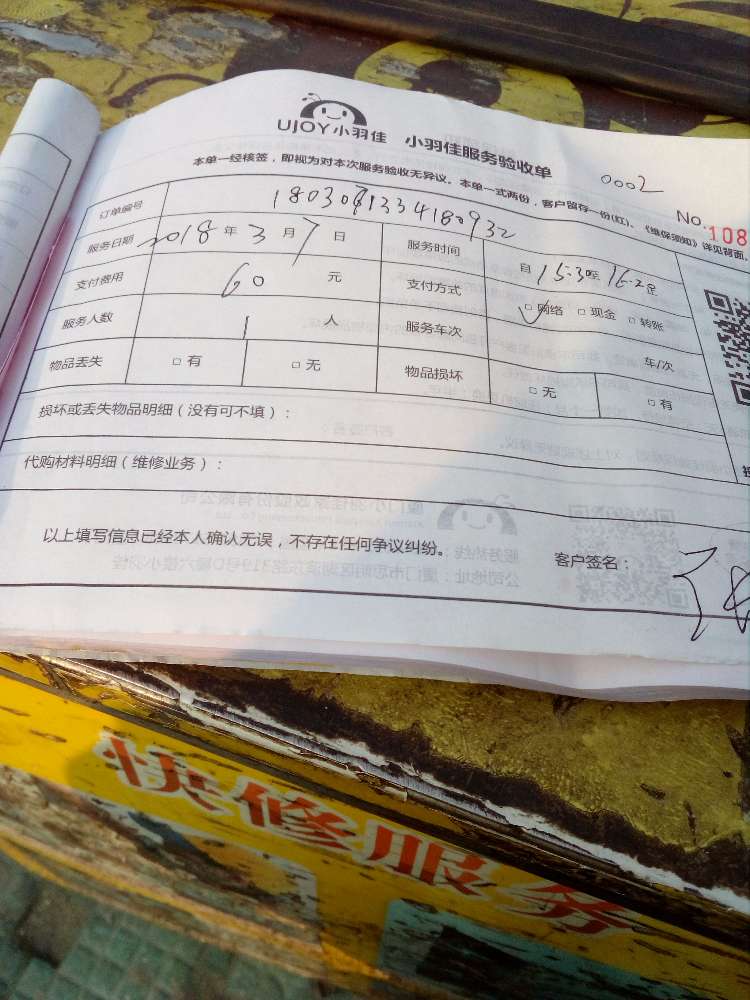 UJOY小羽佳 小羽佳服务验收单
0002
本单一经核签，即视为对本次服务验收无异议。本单一式两份，客户留存一份(红)。《维保须知》详见背面。
No. 108
订单编号 180307133418093​2
服务日期 2018 年 3 月 7 日 服务时间 自 15:30至 16:20止
支付费用 60 元 支付方式 ☑ 网络 □ 现金 □ 转账
服务人数 1 人 服务车次 车/次
物品丢失 □ 有 □ 无 物品损坏 □ 无 □ 有
损坏或丢失物品明细（没有可不填）：
代购材料明细（维修业务）：
以上填写信息已经本人确认无误，不存在任何争议纠纷。 客户签名：
快修服务